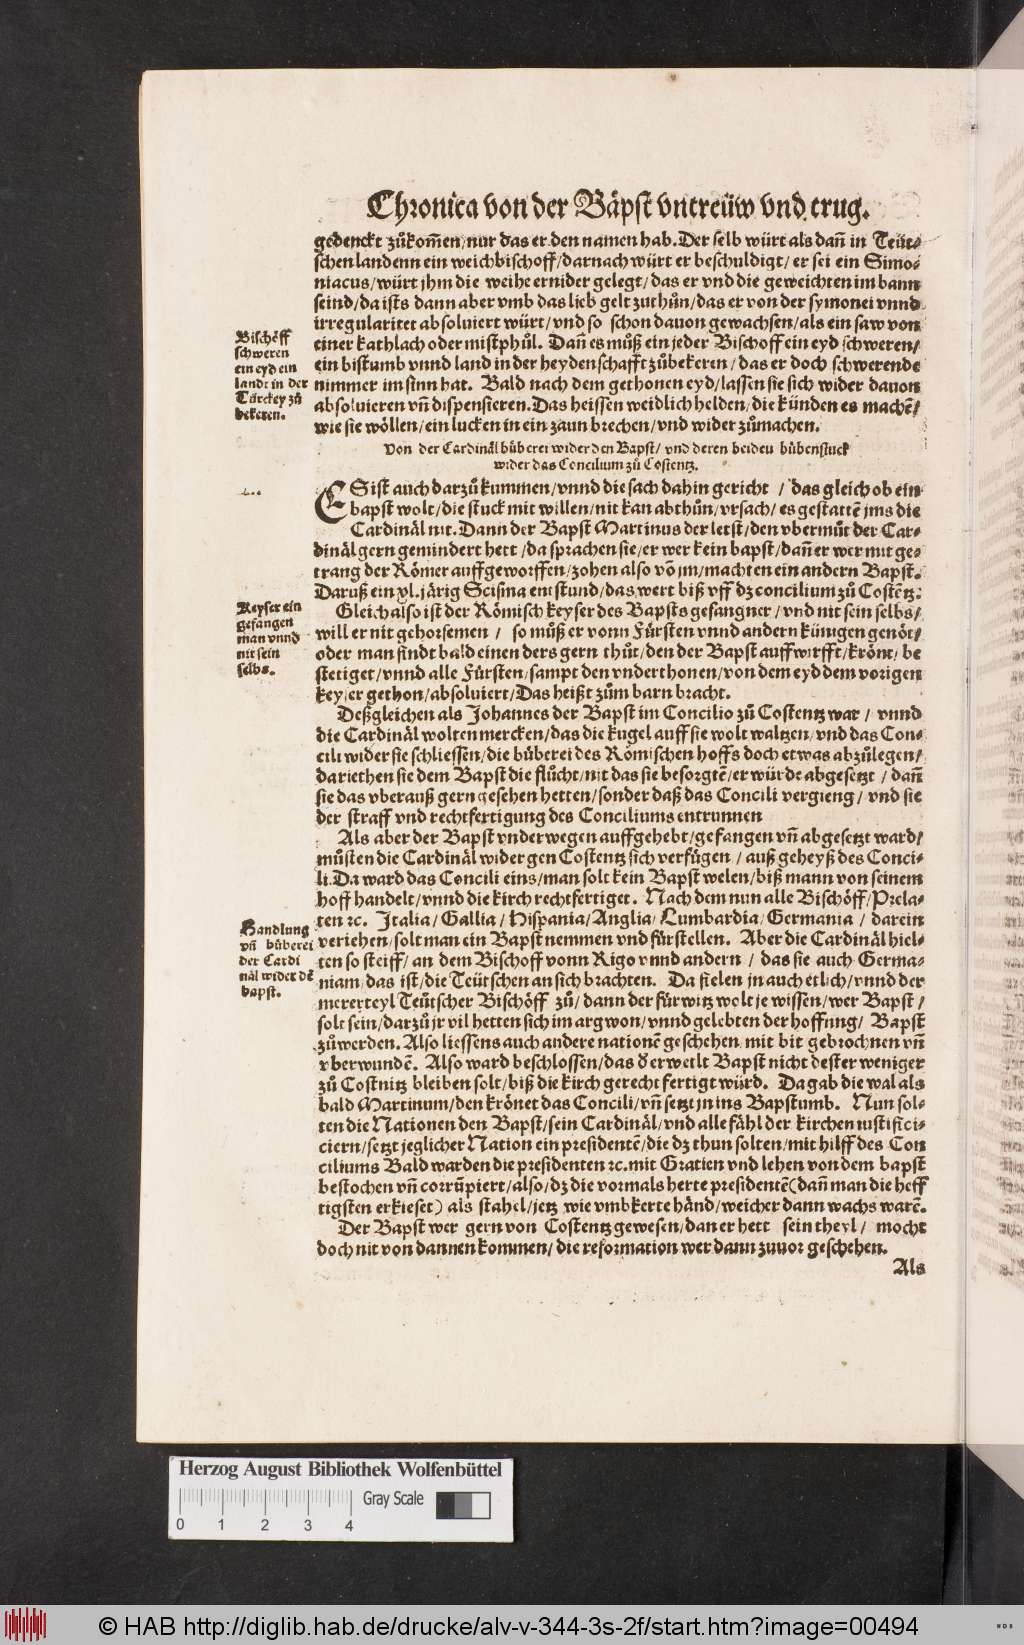 Chronica von der Bäpst vntreüw vnd trug.
gedenckt zůkom̃en/nur das er den namen hab. Der selb würt als dañ in Teüt⸗
schen landenn ein weichbischoff/darnach würt er beschuldigt/er sei ein Simo⸗
niacus/würt jhm die weihe ernider gelegt/das er vnd die geweichten im bann
seind/da ists dann aber vmb das lieb gelt zuthůn/das er von der symonei vnnd
irregularitet absoluiert würt/vnd so schon dauon gewachsen/als ein saw von
einer kathlach oder mistphůl. Dañ es můß ein jeder Bischoff ein eyd schweren/
ein bistumb vnnd land in der heydenschafft zůbekeren/das er doch schwerende
nimmer im sinn hat. Bald nach dem gethonen eyd/lassen sie sich wider dauon
absoluieren vñ dispensieren. Das heissen weidlich helden/die künden es machẽ/
wie sie wöllen/ein lucken in ein zaun brechen/vnd wider zůmachen.
Bischöff
schweren
ein eyd ein
landt in der
Türckey zů
bekeren.
Von der Cardinäl büberei wider den Bapst/vnd deren beiden bübenstuck
wider das Concilium zů Costentz.
ES ist auch darzů kummen/vnnd die sach dahin gericht/das gleich ob ein
bapst wolt/die stuck mit willen/nit kan abthůn/vrsach/es gestattẽ jms die
Cardinäl nit. Dann der Bapst Martinus der letst/den vbermůt der Car⸗
dinäl gern gemindert hett/da sprachen sie/er wer kein bapst/dañ er wer mit ge⸗
trang der Römer auffgeworffen/zohen also võ jm/machten ein andern Bapst.
Daruß ein xl. järig Scisma entstund/das wert biß vff dz concilium zů Costẽtz.
Gleich also ist der Römisch keyser des Bapsts gefangner/vnd nit sein selbs/
will er nit gehorsemen/so můß er vonn Fürsten vnnd andern künigen genöt/
oder man findt bald einen ders gern thůt/den der Bapst auffwirfft/krönt/be
stetiget/vnnd alle Fürsten/sampt den vnderthonen/von dem eyd dem vorigen
keyser gethon/absoluiert/Das heißt zům barn bracht.
Keyser ein
gefangen
man vnnd
nit sein
selbs.
Deßgleichen als Johannes der Bapst im Concilio zů Costentz war/vnnd
die Cardinäl wolten mercken/das die kugel auff sie wolt waltzen/vnd das Con⸗
cili wider sie schliessen/die büberei des Römischen hoffs doch etwas abzůlegen/
dariethen sie dem Bapst die flucht/nit das sie besorgtẽ/er würde abgesetzt/dañ
sie das vberauß gern gesehen hetten/sonder daß das Concili vergieng/vnd sie
der straff vnd rechtfertigung des Conciliums entrunnen
Als aber der Bapst vnderwegen auffgehebt/gefangen vñ abgesetzt ward/
můsten die Cardinäl wider gen Costentz sich verfügen/auß geheyß des Conci⸗
li. Da ward das Concili eins/man solt kein Bapst welen/biß mann von seinem
hoff handelt/vnnd die kirch rechtfertiget. Nach dem nun alle Bischöff/Prela⸗
ten ꝛc. Italia/Gallia/Hispania/Anglia/Lumbardia/Germania/darein
veriehen/solt man ein Bapst nemmen vnd fürstellen. Aber die Cardinäl hiel⸗
ten so steiff/an dem Bischoff vonn Rigo vnnd andern/das sie auch Germa⸗
niam/das ist/die Teütschen an sich brachten. Da fielen jn auch etlich/vnnd der
mererteyl Teütscher Bischöff zů/dann der fürwitz wolt je wissen/wer Bapst/
solt sein/darzů jr vil hetten sich im argwon/vnnd gelebten der hoffnng/Bapst
zůwerden. Also liessens auch andere nationẽ geschehen/mit bit gebrochnen vñ
vberwundẽ. Also ward beschlossen/das d̉ erwelt Bapst nicht dester weniger
zů Costnitz bleiben solt/biß die kirch gerecht fertigt würd. Da gab die wal als
bald Martinum/den krönet das Concili/vñ setzt jn ins Bapstumb. Nun sol⸗
ten die Nationen den Bapst/sein Cardinäl/vnd alle fähl der kirchen iustifici⸗
ciern/setzt jeglicher Nation ein presidentẽ/die dz thun solten/mit hilff des Con
ciliums Bald warden die presidenten ꝛc. mit Gratien vnd lehen von dem bapst
bestochen vñ corrũpiert/also/dz die vormals herte presidentẽ (dañ man die heff
tigsten erkieset) als stahel/jetz wie vmbkerte händ/weicher dann wachs warẽ.
Handlung
vñ büberei
der Cardi
näl wider dẽ
bapst.
Der Bapst wer gern von Costentz gewesen/dan er hett sein theyl/mocht
doch nit von dannen kommen/die reformation wer dann zuuor geschehen.
Als
Herzog August Bibliothek Wolfenbüttel
Gray Scale
0 1 2 3 4
© HAB http://diglib.hab.de/drucke/alv-v-344-3s-2f/start.htm?image=00494